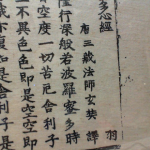 多心經
唐三藏法師玄奘譯
行深般若波羅蜜多時
空度一切苦厄舍利子
不異色色即是空空即
亦復如是舍利子是
羽